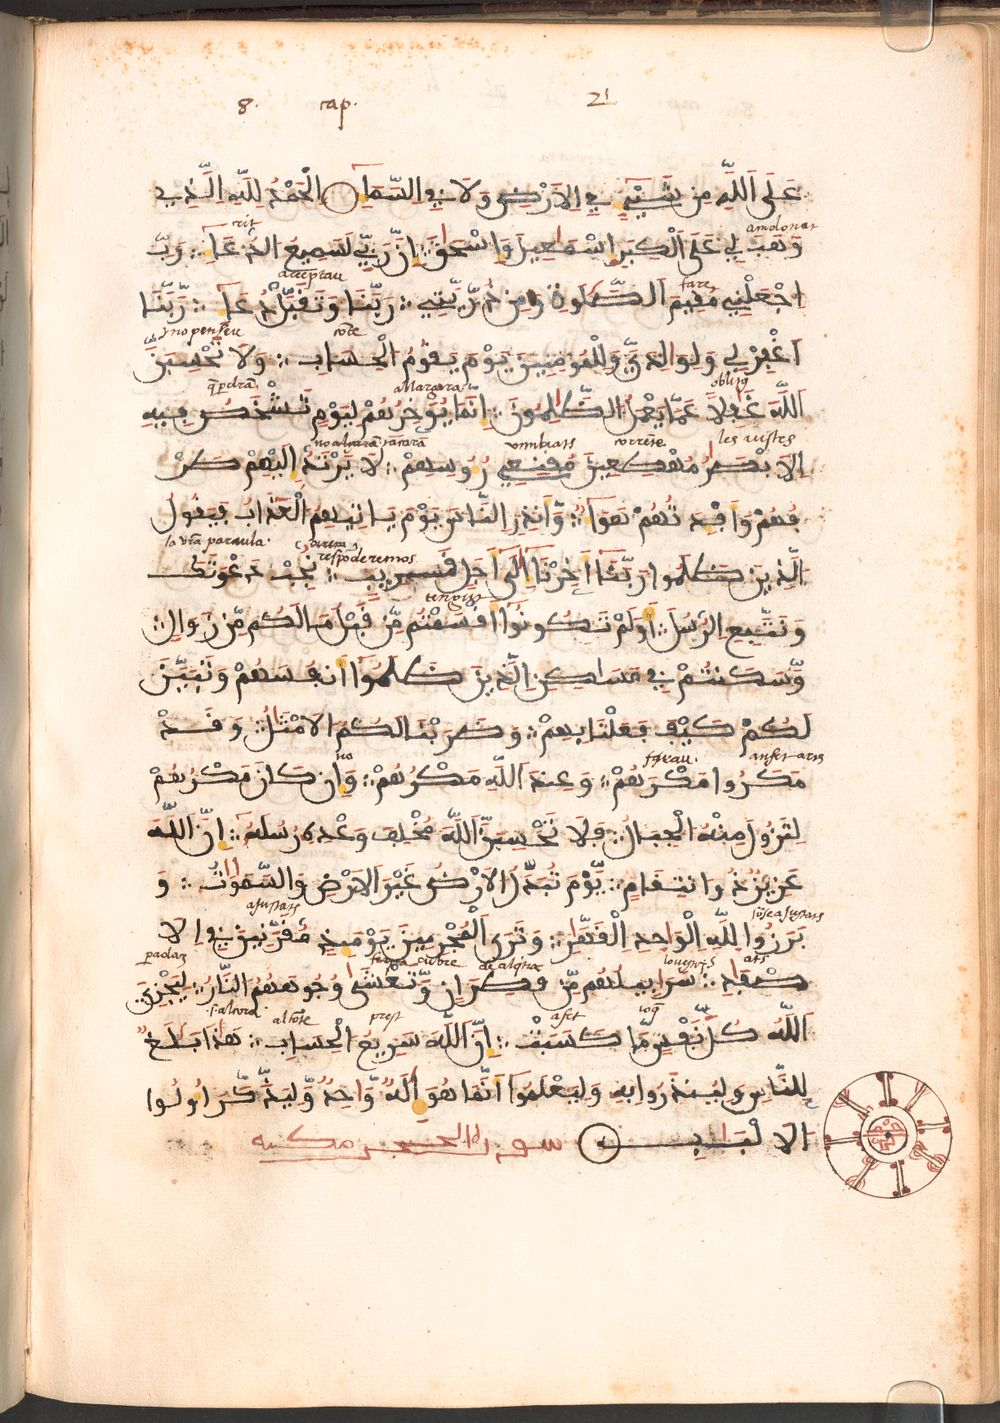 8. cap. 21
عَلَى اَللَّهِ مِن شَيْءٍ فِي اِلَارْضِ وَلَا فِي السَّمَاءِ الْحَمْدُ لِلَّهِ اِلَّذِي
crit amdonat
وَهَبَ لِي عَلَى اَلْكِبَرِ إِسْمَاعِيلَ وَإِسْحَاقَ إِنَّ رَبِّي لَسَمِيعُ الدُّعَاءِ رَبِّ
acceptau fare
اجْعَلْنِي مُقِيمَ الصَّلَوٰةِ وَمِن ذُرِّيَّتِي رَبَّنَا وَتَقَبَّلْ دُعَاءِ رَبَّنَا
y no penseu cõte
اَغْفِرْ لِي وَلِوَالِدَيَّ وَلِلْمُومِنِينَ يَوْمَ يَقُومُ الْحِسَابُ وَلَا تَحْسِبَنَّ
allargara oblitq
اَللَّهَ غَافِلًا عَمَّا يَعْمَلُ الظَّالِمُونَ إِنَّمَا يُؤَخِّرُهُمْ لِيَوْمٍ تَشْخَصُ فِيهِ
no alçara tacara correte les vistes
اِلَابْصَارُ مُهْطِعِينَ مُقْنِعِي رُءُوسِهِمْ لَا يَرْتَدُّ إِلَيْهِمْ طَرْ
فُهُمْ وَأَفْئِدَتُهُمْ هَوَاءٌ وَأَنذِرِ النَّاسَ يَوْمَ يَاتِيهِمُ الْعَذَابُ فَيَقُولُ
la vra paraula respõderemos
الَّذِينَ ظَلَمُوا رَبَّنَا أَخِّرْنَا إِلَىٰ أَجَلٍ قَرِيبٍ نُّجِبْ دَعْوَتَكَ
tengist
وَنَتَّبِعِ الرُّسُلَ أَوَلَمْ تَكُونُوا أَقْسَمْتُم مِّن قَبْلُ مَا لَكُم مِّن زَوَالٍ
وَسَكَنتُمْ فِي مَسَاكِنِ الَّذِينَ ظَلَمُوا أَنفُسَهُمْ وَتَبَيَّنَ
لَكُمْ كَيْفَ فَعَلْنَا بِهِمْ وَضَرَبْنَا لَكُمُ الَامْثَالَ وَقَدْ
no anfet
مَكَرُوا مَكْرَهُمْ وَعِندَ اللَّهِ مَكْرُهُمْ وَإِن كَانَ مَكْرُهُمْ
لِتَزُولَ مِنْهُ الْجِبَالُ فَلَا تَحْسِبَنَّ اللَّهَ مُخْلِفَ وَعْدِهِ رُسُلَهُ إِنَّ اللَّهَ
عَزِيزٌ ذُو انتِقَامٍ يَوْمَ تُبَدَّلُ الَارْضُ غَيْرَ الَارْضِ وَالسَّمَوَاتُ وَ
ajustats
بَرَزُوا لِلَّهِ الْوَاحِدِ الْقَهَّارِ وَتَرَى الْمُجْرِمِينَ يَوْمَئِذٍ مُّقَرَّنِينَ فِي اِلَا
cubre de alqtra ats
صْفَادِ سَرَابِيلُهُم مِّن قَطِرَانٍ وَتَغْشَىٰ وُجُوهَهُمُ النَّارُ لِيَجْزِيَ
al cõte prest a fet
اَللَّهُ كُلَّ نَفْسٍ مَّا كَسَبَتْ إِنَّ اللَّهَ سَرِيعُ الْحِسَابِ هَذَا بَلَاغٌ
لِّلنَّاسِ وَلِيُنذَرُوا بِهِ وَلِيَعْلَمُوا أَنَّمَا هُوَ إِلَهٌ وَاحِدٌ وَلِيَذَّكَّرَ أُولُوا
الَالْبَابِ سورة الحجر مكية